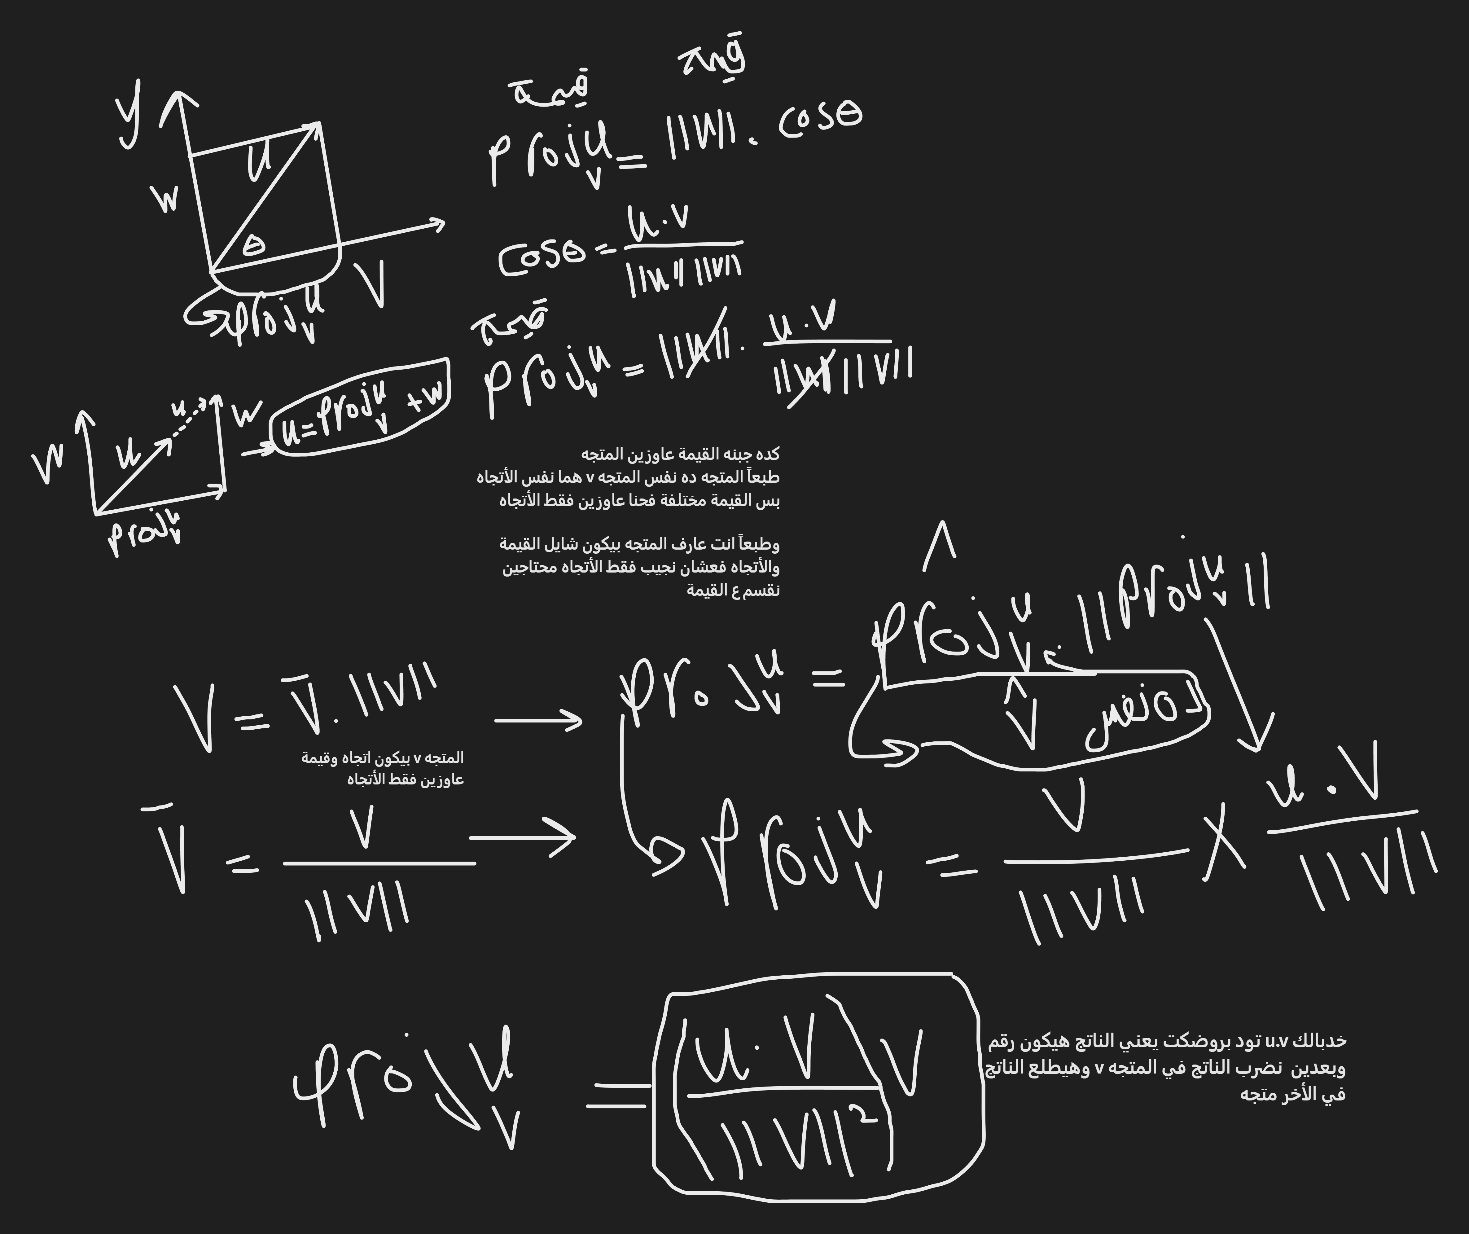 y
w
u
θ
v
proj u v
قيمة قيمة
proj u v = ||u|| . cosθ
cosθ = u.v / ||u|| ||v||
قيمة
proj u v = ||u|| . u.v / ||u|| ||v||
w
u
u
w
proj u v
u = proj u v + w
كده جبنه القيمة عاوزين المتجه
طبعاً المتجه ده نفس المتجه v هما نفس الأتجاه
بس القيمة مختلفة فحنا عاوزين فقط الأتجاه
وطبعاً انت عارف المتجه بيكون شايل القيمة
والأتجاه فعشان نجيب فقط الأتجاه محتاجين
نقسم ع القيمة
V = V̄ . ||v||
proj u v = proj^ u v . ||proj u v||
v^
المتجه v بيكون اتجاه وقيمة
عاوزين فقط الأتجاه
V̄ = v / ||v||
proj u v = v / ||v|| × u.v / ||v||
proj u v = (u.v / ||v||²) v
خدبالك u.v تود بروضكت يعني الناتج هيكون رقم
وبعدين نضرب الناتج في المتجه v وهيطلع الناتج
في الأخر متجه